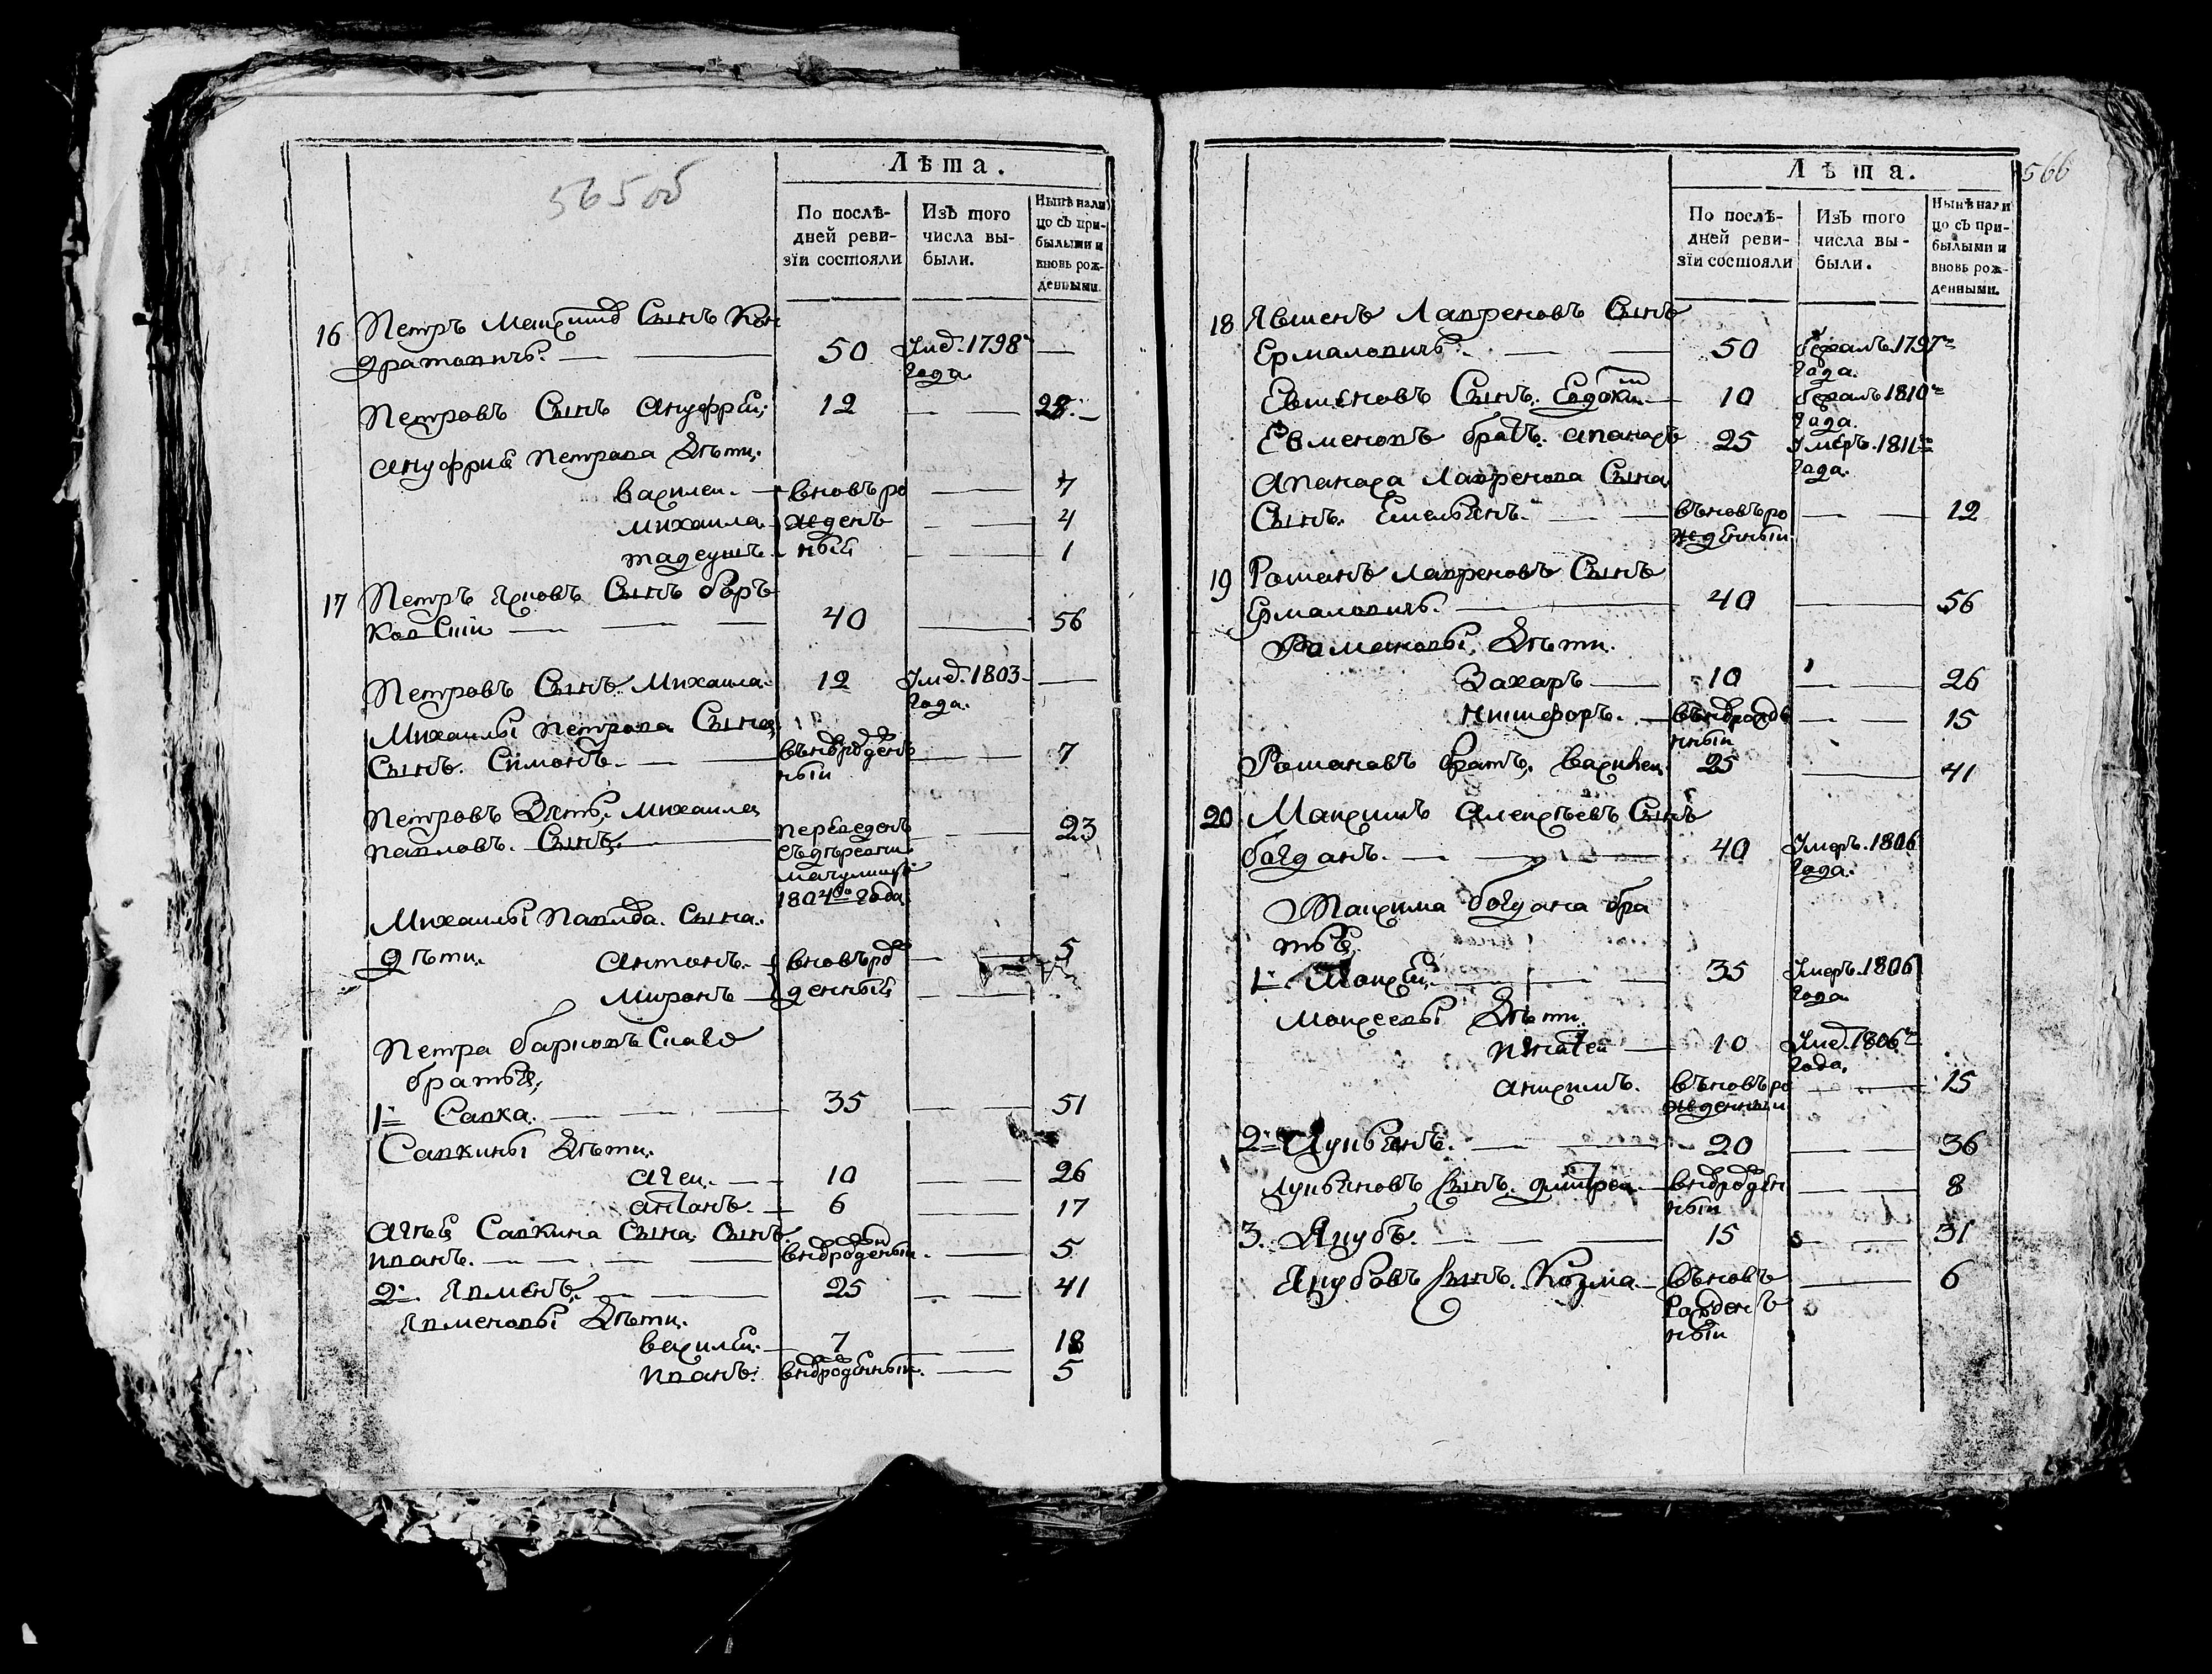 565 об
Лѣта.
По послѣ-
дней реви-
зїи состояли
Изъ того
числа вы-
были.
Нынѣ нали
цо съ при-
былыми и
вновь рож-
денными.
16 Петръ Сынъ Кон
дратовичъ. 50 1798
года
Петровъ Сынъ Ануфрей 12 28
Ануфрия Петрова Дѣти
Василеи вновъ ро 7
Михаила жденъ 4
тадеушъ ный 1
17 Петръ Сынъ
40 56
Петровъ Сынъ Михаила 12 1803
года.
Михаилы Петрова Сына
Сынъ Симонъ 7
ныи
Петровъ Зять Михаила
Павловъ Сынъ переведенъ 23
съ деревни
1804го года
Михаилы Павлова Сына
Дѣти Антонъ вновъ рож 5
Миронъ денный
Петра
братья
1е Савка 35 51
Савкины Дѣти
Агеи 10 26
антонъ 6 17
Савкина Сына Сынъ
иванъ 5
2е Явменъ 25 41
Явменовы Дѣти
василеи 7 18
иванъ 5
566
Лѣта.
По послѣ-
дней реви-
зїи состояли
Изъ того
числа вы-
были.
Нынѣ нали
цо съ при-
былыми и
вновь рож-
денными.
18 Явменъ Лавреновъ Сынъ
Ермаловичъ 50 бежалъ 1797го
года.
Евменовъ Сынъ Евдоким 10 бежалъ 1810го
года.
Евменовъ братъ апанасъ 25 Умеръ 1811го
года.
Апанаса Лавренова Сына
Сынъ Емельянъ въновъ ро 12
жденныи
19 Романъ Лавреновъ Сынъ
Ермаловичъ 40 56
Романовы Дѣти
Захаръ 10 26
Никифоръ 15
нныи
Романовъ братъ Василеи 25 41
20 Максимъ Алексѣевъ Сынъ
богданъ 40 Умеръ 1806
года.
Максима богдана бра
тья
1е Моисеи 35 Умеръ 1806
года
Моисеевы Дѣти
Игнатеи 10 1806го
года.
анисимъ въновъ ро 15
жденныи
2е Лукьянъ 20 36
Лукьяновъ Сынъ дмитреи 8
ныи
3 Якубъ 15 31
Якубовъ Сынъ Козма въновъ 6
рожденъ
ныи